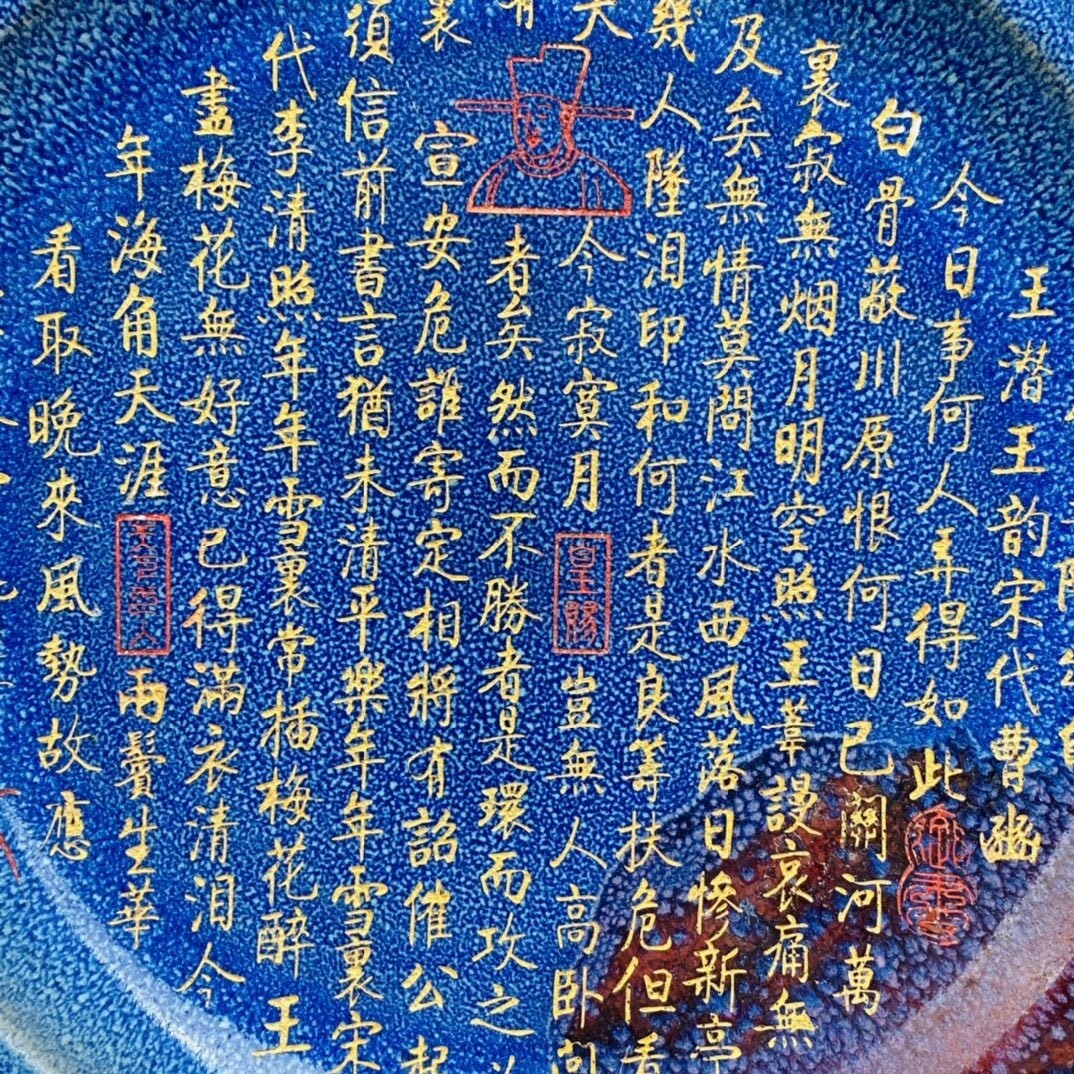 王潜王韵宋代曹豳
今日事何人弄得如此
白骨蔽川原恨何日已關河萬
裏寂無烟月明空照王葦謾哀痛無
及矣無情莫問江水西風落日慘新亭
幾人墮泪印和何者是良筹扶危但看
天今寂寞月皇賜豈無人高卧
有者矣然而不勝者是環而攻之
裏宣安危誰寄定相將有詔催公起
須信前書言猶未清平樂年年雪裏宋
代李清照年年雪裏常插梅花醉王
盡梅花無好意已得滿衣清泪今
年海角天涯兩鬢生華
看取晚來風勢故應